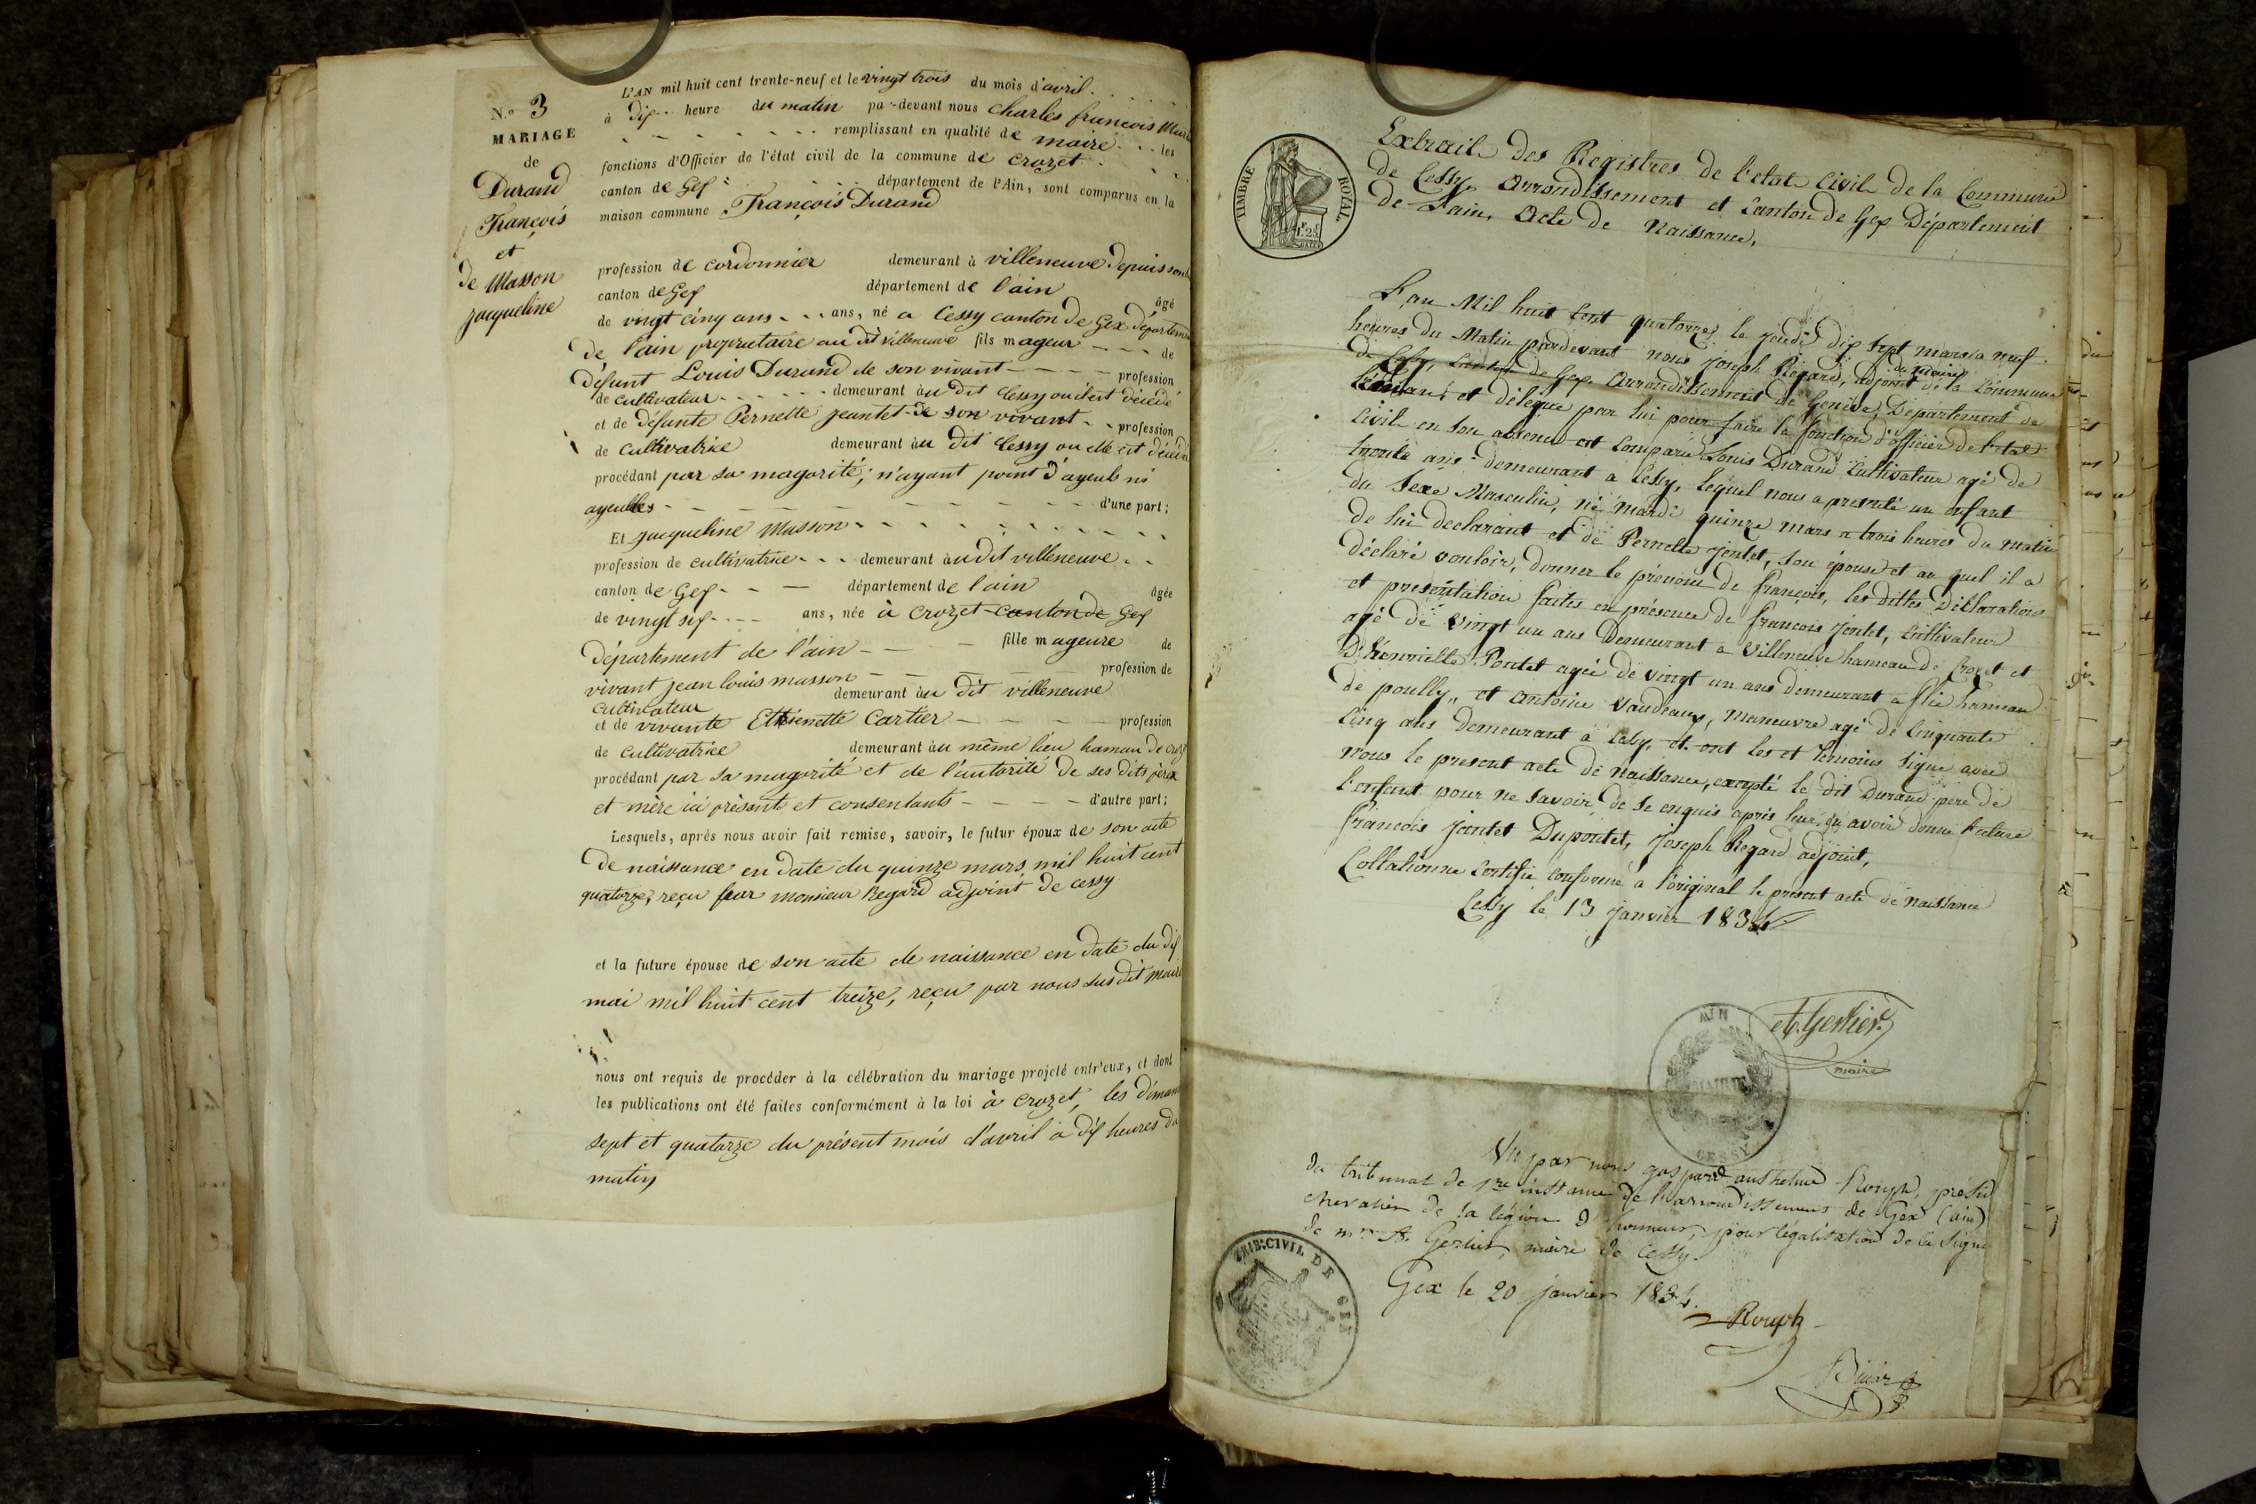 N.o 3
MARIAGE
de
Durand
François
et
de Masson
jacqueline
L'AN mil huit cent trente-neuf et le vingt trois du mois d'avril
à dix heure du matin par-devant nous Charles françois
remplissant en qualité de maire les
fonctions d'Officier de l'état civil de la commune de crozet
canton de Gex département de l'Ain, sont comparus en la
maison commune François Durand
profession de cordonnier demeurant à villeneuve depuis son
canton de Gex département de l'ain âgé
de vingt cinq ans ans, né a Cessy canton de Gex département
de l'ain propriétaire au dit villeneuve fils mageur de
défunt Louis Durand de son vivant profession
de cultivateur demeurant au dit Cessy ou il est décédé
et de défunte Pernette jeantet de son vivant profession
de cultivatrice demeurant au dit Cessy ou elle est décédée
procédant par sa magorité; n'ayant point d'ayeuls ni
ayeulles d'une part;
Et jacqueline Masson
profession de cultivatrice demeurant au dit villeneuve
canton de Gex département de l'ain âgée
de vingt six ans, née à Crozet canton de Gex
département de l'ain fille mageure de
vivant jean louis masson profession de
cultivateur demeurant au dit villeneuve
et de vivante Ethienette Cartier profession
de cultivatrice demeurant au même lieu hamau de croz
procédant par sa magorité et de l'autorité de ses dits père
et mère ici présents et consentants d'autre part;
Lesquels, après nous avoir fait remise, savoir, le futur époux de son acte
de naissance en date du quinze mars mil huit cent
quatorze, reçu par monsieur Regard adjoint de cessy
et la future épouse de son acte de naissance en date du dix
mai mil huit cent treize, reçu par nous susdit maire
nous ont requis de procéder à la célébration du mariage projeté entr'eux, et dont
les publications ont été faites conformément à la loi à Crozet, les diman
sept et quatorze du présent mois d'avril à dix heures du
matin
TIMBRE ROYAL
Extrait des Registres de l'etat Civil de la Commune
de Cessy, Arrondissement et Canton de Gex Département
de l'ain, Acte de Naissance,
L'an Mil huit Cent quatorze, le jeudi dix sept mars a neuf
heures du Matin pardevant nous Joseph Regard, adjoint du maire de la Commune
de Cessy, Canton de Gex Arrondissement de Genève, Département de
Léman, et délégué par lui pour faire la fonction d'officier de l'etat
Civil en son absence est Comparu Louis Durand Cultivateur agé de
trente ans demeurant a Cessy, lequel nous a presenté un enfant
du Sexe Masculin, né mardi quinze mars a trois heures du matin
de lui declarant et de Pernette Jentet, son épouse et au quel il a
déclaré vouloir, donner le prénom de françois, les dittes Déclaration
et presentation faites en présence de françois Jentet, Cultivateur
agé de vingt un ans Demeurant a Villeneuve hameau de Crozet et
D'henriette Pontet agée de vingt un ans demeurant a flie hameau
de poully, et Antoine Vaudeaux, Maneuvre agé de Cinquante
Cinq ans demeurant à Cessy, et ont les et temoins signe avec
nous le present acte de naissance, excepté le dit Durand père de
l'enfant pour ne savoir de se enquis après leur en avoir donne lecture
françois Jantet Dupontet, Joseph Regard adjoint,
Collationne Certifie Conforme a l'original le present acte de naissance
Cessy le 13 janvier 1834
At. Gerlier
maire
AIN
MAIRIE
CESSY
Vu par nous gaspard anthelme Rouph, présid
du tribunal de 1re instance de l'arrondissement de Gex (ain)
chevalier de la légion d'honneur, pour légalisation de la signe
de mr A. Gerlier, maire de Cessy.
Gex le 20 janvier 1834.
Rouph
TRIB: CIVIL DE GEX